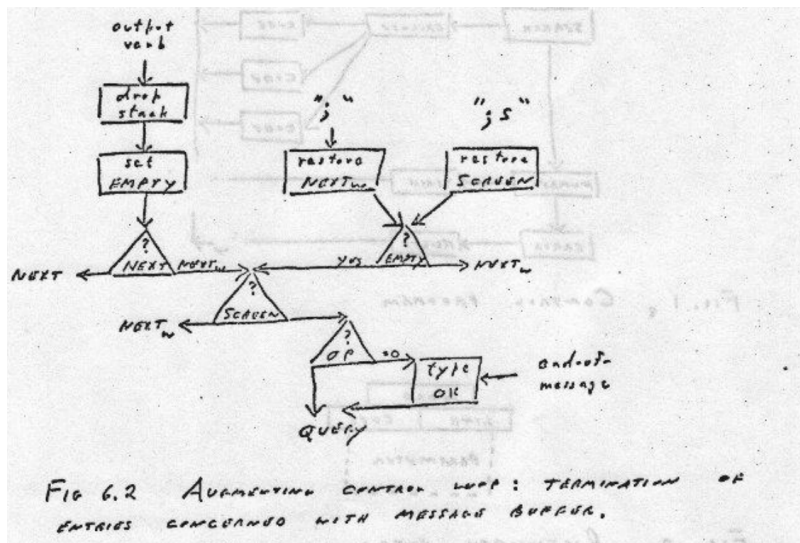 output
verb
drop
stack
set
EMPTY
";"
";S"
restore
NEXTw
restore
SCREEN
?
NEXT
NEXT
NEXTw
?
EMPTY
yes
NEXTw
?
SCREEN
NEXTw
?
OP
=0
type
OK
end-of-
message
QUERY
FIG 6.2 AUGMENTING CONTROL LOOP: TERMINATION OF
ENTRIES CONCERNED WITH MESSAGE BUFFER.